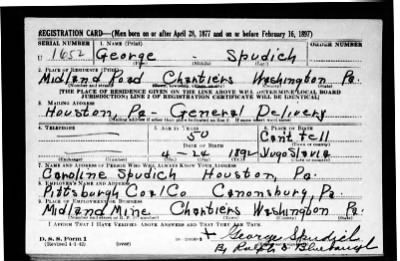 REGISTRATION CARD—(Men born on or after April 28, 1877 and on or before February 16, 1897)
SERIAL NUMBER 1. NAME (Print) ORDER NUMBER
U 1652 George - Spudich
2. PLACE OF RESIDENCE (Print)
Midland Road Chartiers Washington Pa.
[THE PLACE OF RESIDENCE GIVEN ON THE LINE ABOVE WILL DETERMINE LOCAL BOARD
JURISDICTION; LINE 2 OF REGISTRATION CERTIFICATE WILL BE IDENTICAL]
3. MAILING ADDRESS
Houston, Pa General Delivery
4. TELEPHONE 5. AGE IN YEARS 6. PLACE OF BIRTH
50 Can't tell
DATE OF BIRTH
4-24 1892 Yugoslavia
7. NAME AND ADDRESS OF PERSON WHO WILL ALWAYS KNOW YOUR ADDRESS
Caroline Spudich Houston, Pa.
8. EMPLOYER'S NAME AND ADDRESS
Pittsburgh Coal Co Canonsburg, Pa
9. PLACE OF EMPLOYMENT OR BUSINESS
Midland Mine Chartiers Washington Pa.
I AFFIRM THAT I HAVE VERIFIED ABOVE ANSWERS AND THAT THEY ARE TRUE.
D. S. S. Form 1
(Revised 4-1-42) (over)
+ George Spudich
By Ralph